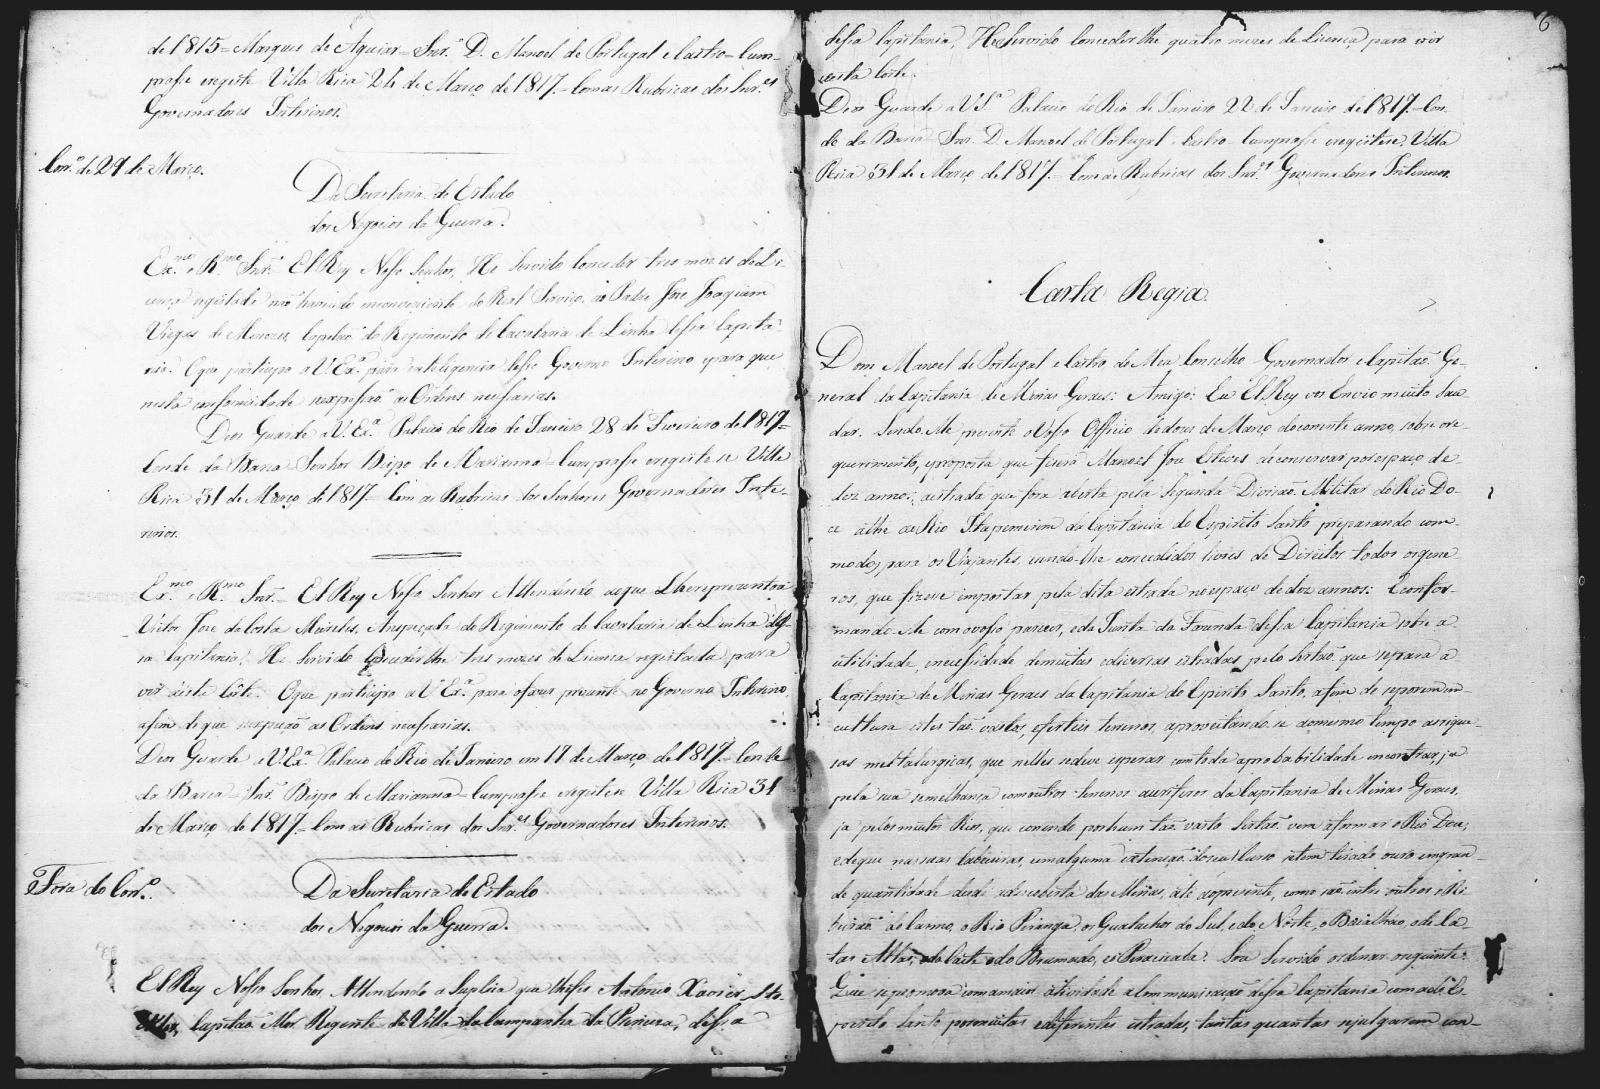 de 1815 = Marques de Aguiar = Snr. D. Manoel de Portugal e Castro = Cum-
prasse e registe Villa Rica 24 de Março de 1817. = Com as Rubricas dos Snr.es
Governadores Interinos.
Corr.o de 29 de Março.
Da Secretaria de Estado
dos Negocios da Guerra.
Ex.mo e R.mo Snr. = El Rey Nosso Senhor, He Servido Conceder tres mezes de Li-
cença registada não havendo inconveniente do Real Serviço, ao Padre Joze Joaquim
Viegas de Menezes, Capelão do Regimento de Cavalaria de Linha dessa Capita-
nia. O que participo a V. Ex.a para inteligencia desse Governo Interino e para que
nesta conformidade se expessão as Ordens necessarias.
Deos Guarde a V. Ex.a Palacio do Rio de Janeiro 28 de Fevereiro de 1817 =
Conde da Barca = Senhor Bispo de Marianna = Cumprasse e registese Villa
Rica 31 de Março de 1817 = Com as Rubricas dos Senhores Governadores Inte-
rinos.
Ex.mo e R.mo Snr. = El Rey Nosso Senhor Attendendo aoque Lhe reprezentou
Victor Joze da Costa Meireles, Anspeçada do Regimento de Cavalaria de Linha des-
sa Capitania, He Servido Conceder lhe tres mezes de Licença registada para
vir á este Corte. O que participo a V. Ex.a para o fazer prezente no Governo Interino,
afim de que se expeção as Ordens necessarias.
Deos Guarde a V. Ex.a Palacio do Rio de Janeiro em 17 de Março de 1817 = Conde
da Barca = Snr. Bispo de Marianna = Cumprasse e registese Villa Rica 31
de Março de 1817 = Com as Rubricas dos Snr.es Governadores Interinos.
Fora do Corr.o
Da Secretaria de Estado
dos Negocios da Guerra.
El Rey Nosso Senhor, Attendendo a Suplica que lhe fez Antonio Xavier
Capitão Mor Regente da Villa da Campanha da Princeza, dessa
6
dessa Capitania, He Servido Conceder lhe quatro mezes de Licença para vir
a esta Corte.
Deos Guarde a V. S.a Palacio do Rio de Janeiro 22 de Janeiro de 1817 = Con-
de da Barca = Snr. D. Manoel de Portugal e Castro = Cumprasse e registese. Villa
Rica 31 de Março de 1817. = Com as Rubricas dos Snr.es Governadores Interinos.
Carta Regia.
Dom Manoel de Portugal e Castro do Meu Conselho Governador e Capitão Ge-
neral da Capitania de Minas Geraes: Amigo: Eu El Rey vos Envio muito Sau-
dar. Sendo Me prezente o Vosso Officio de doze de Março do corrente anno, sobre o re-
querimento, e proposta que fizera Manoel Joze Esteves de conservar por espaço de
dez annos, a estrada que fora aberta pela Segunda Divizão Militar do Rio Do-
ce athe ao Rio Itapemirim da Capitania do Espirito Santo preparando com-
modos para os Viajantes, sendo lhe concedidos livres de Direitos todos os gene-
ros, que fizesse importar pela dita estrada no espaço de dez annos: E confor-
mando Me com o vosso parecer, e da Junta da Fazenda dessa Capitania sobre a
utilidade, e necessidade de muitas e diversas estradas pelo Sertão que separa a
Capitania de Minas Geraes da Capitania do Espirito Santo, afim de se porem em
cultura estes tão vastos, e ferteis terrenos, aproveitando se ao mesmo tempo as rique-
zas metalurgicas, que nelles se deve esperar com toda a probabilidade encontrar, já
pela sua semelhança com outros terrenos auriferos da Capitania de Minas Geraes,
já pelos muitos Rios, que correndo por hum tão vasto Sertão vem a formar o Rio Doce,
e de que nas suas Cabeceiras, em alguma extenção do seu Curso se tem tirado ouro em gran-
de quantidade desde a descuberta das Minas, até o prezente, como são entre outros o Ri-
beirão do Carmo, o Rio Piranga, os Gualachos do Sul, e do Norte, o Bacalháo, o de Ca-
tas Altas, o da Casca e do Brumado, e o Piracicaba: Sou Servido ordenar o seguinte.
Que se promova com a maior atividade a Communicação dessa Capitania com a do Es-
pirito Santo por muitas e differentes estradas, tantas quantas se julgarem con-